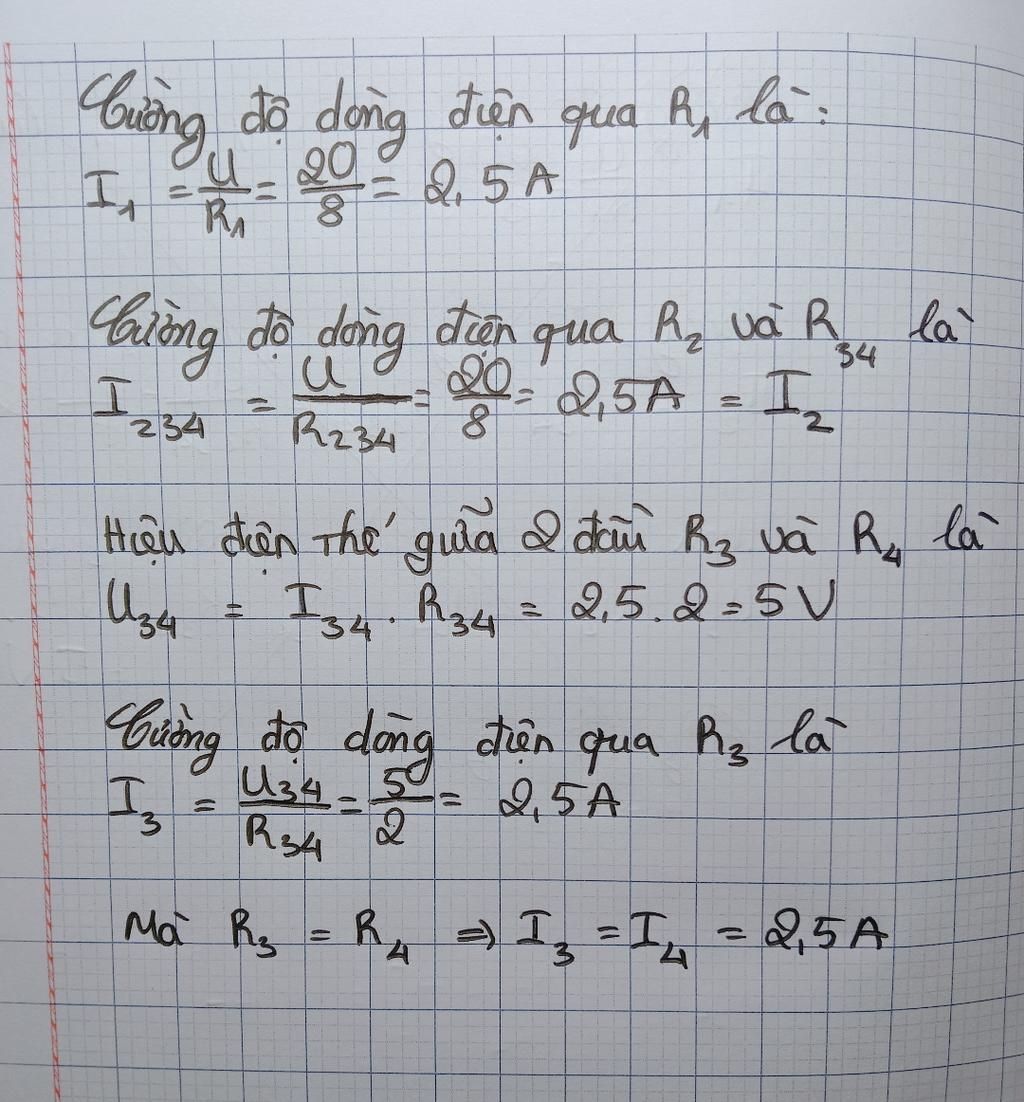 Cường độ dòng điện qua R₁ là:
I₁ = U/R₁ = 20/8 = 2,5A
Cường độ dòng điện qua R₂ và R₃₄ là
I₂₃₄ = U/R₂₃₄ = 20/8 = 2,5A = I₂
Hiệu điện thế giữa 2 đầu R₃ và R₄ là
U₃₄ = I₃₄ . R₃₄ = 2,5 . 2 = 5V
Cường độ dòng điện qua R₃ là
I₃ = U₃₄/R₃₄ = 5/2 = 2,5A
Mà R₃ = R₄ ⇒ I₃ = I₄ = 2,5A